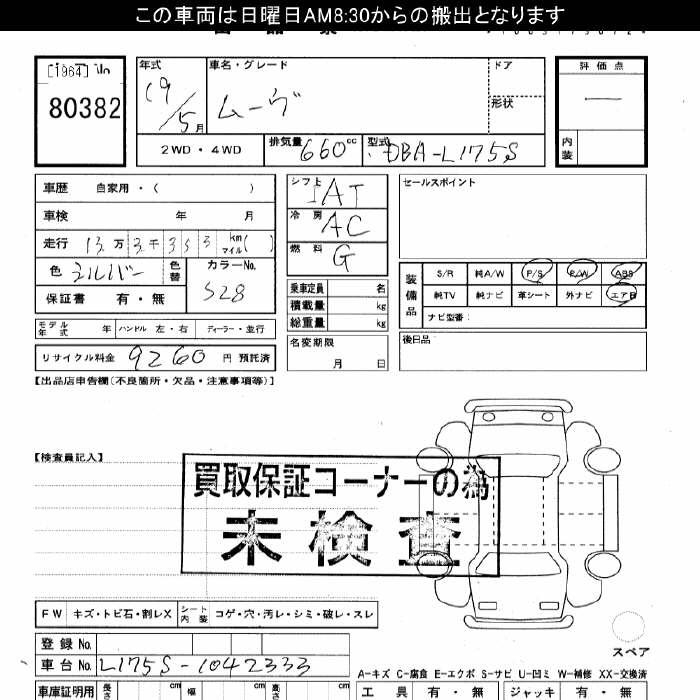 この車両は日曜日AM8:30からの搬出となります
[1964]
80382
年式
19/5月
車名・グレード
ムーヴ
ドア
形状
評価点
—
内装
2WD・4WD
排気量 660cc
型式 DBA-L175S
車歴 自家用・( )
車検 年 月
走行 13万3千353 km マイル( )
色 シルバー 色替
カラーNo. S28
保証書 有・無
シフト IAT
冷房 AC
燃料 G
乗車定員 名
積載量 kg
総重量 kg
名変期限 月 日
セールスポイント
装備品
S/R 純A/W P/S P/W ABS
純TV 純ナビ 革シート 外ナビ エアB
ナビ型番:
後日品
モデル年式 年 ハンドル 左・右 ディーラー・並行
リサイクル料金 9260 円 預託済
【出品店申告欄(不良箇所・欠品・注意事項等)】
【検査員記入】
買取保証コーナーの為
未検査
FW キズ・トビ石・割レX シート内装 コゲ・穴・汚レ・シミ・破レ・スレ
スペア
登録No.
車台No. L175S-1042333
A-キズ C-腐食 E-エクボ S-サビ U-凹ミ W-補修 XX-交換済
車庫証明用 長さ cm 幅 cm 高さ cm
工具 有・無 ジャッキ 有・無